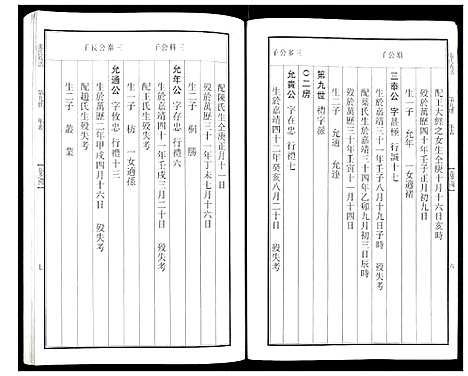 塤公子
三多公子
配王大經之女生仝庚十月十六日亥時
歿於萬歷四十年壬子正月初九日
生一子 允年 一女適禇
三奉公 字甚極 行誠十七
生於嘉靖三十一年壬子八月十九日子時
配葉氏生於嘉靖三十四年乙卯九月初三日辰時
歿於萬歷三十年壬寅十一月十四日
生二子 允通 允達
第九世 禮字派
〇二房
允貴公 字在忠 行禮七
生於嘉靖四十二年癸亥八月二十日
六
三科公子
三奉公長子
配陳氏生仝庚正月十一日
歿於萬歷三十一年丁未七月十六日
生二子 桐 勝
允年公 字存忠 行禮六
生於嘉靖四十一年壬戌三月二十日 歿失考
配王氏生歿失考
生一子 枋 一女適孫
允通公 字攸忠 行禮十三
生於萬歷二年甲戌四月十六日 歿失考
配趙氏生歿失考
生二子 叢 業
七